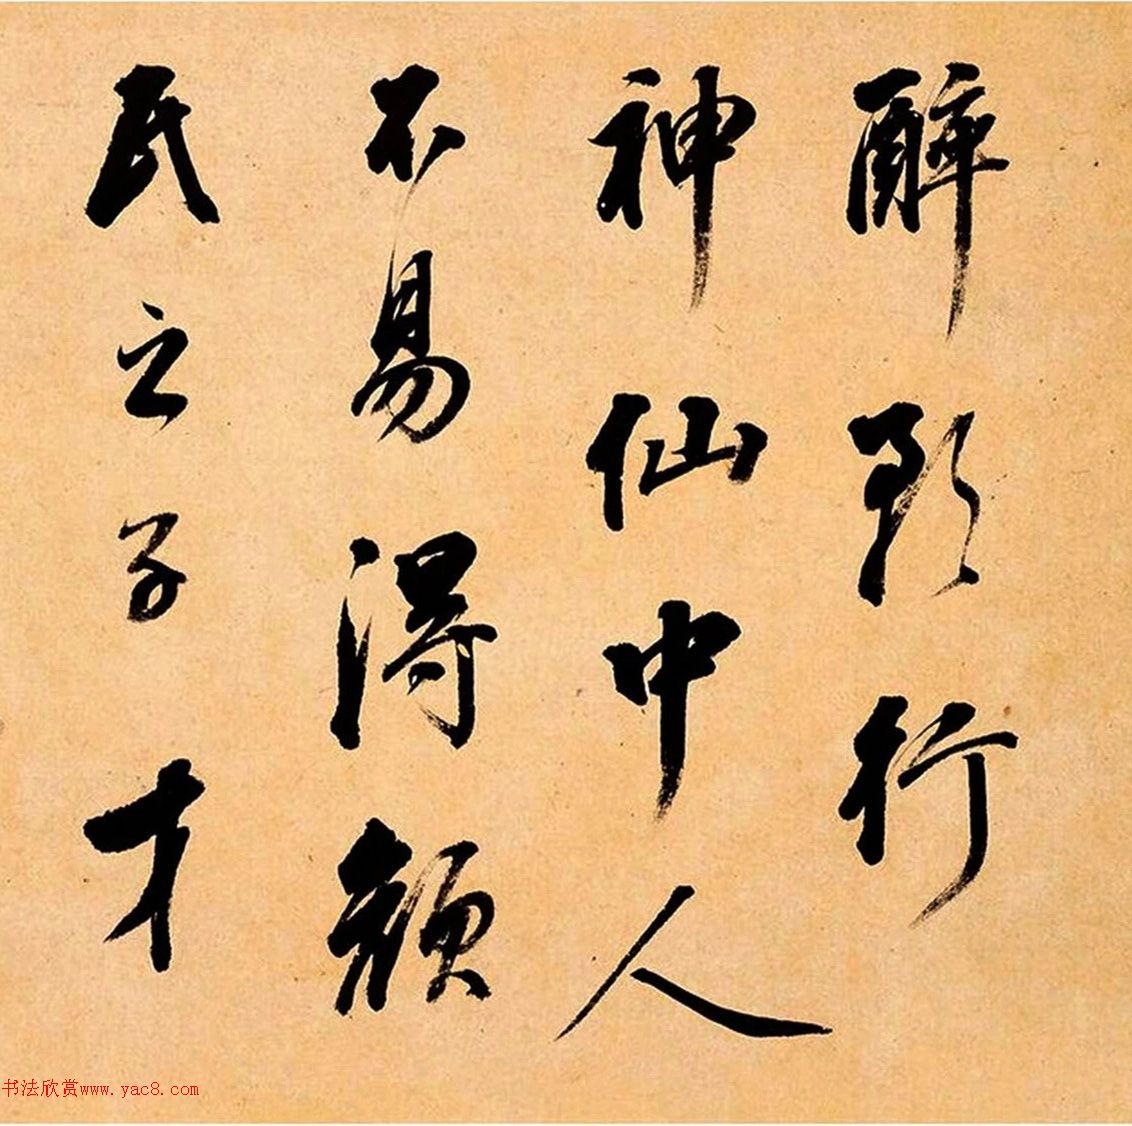 醉歌行
神仙中人
不易得顏
氏之子才
书法欣赏www.yac8.com